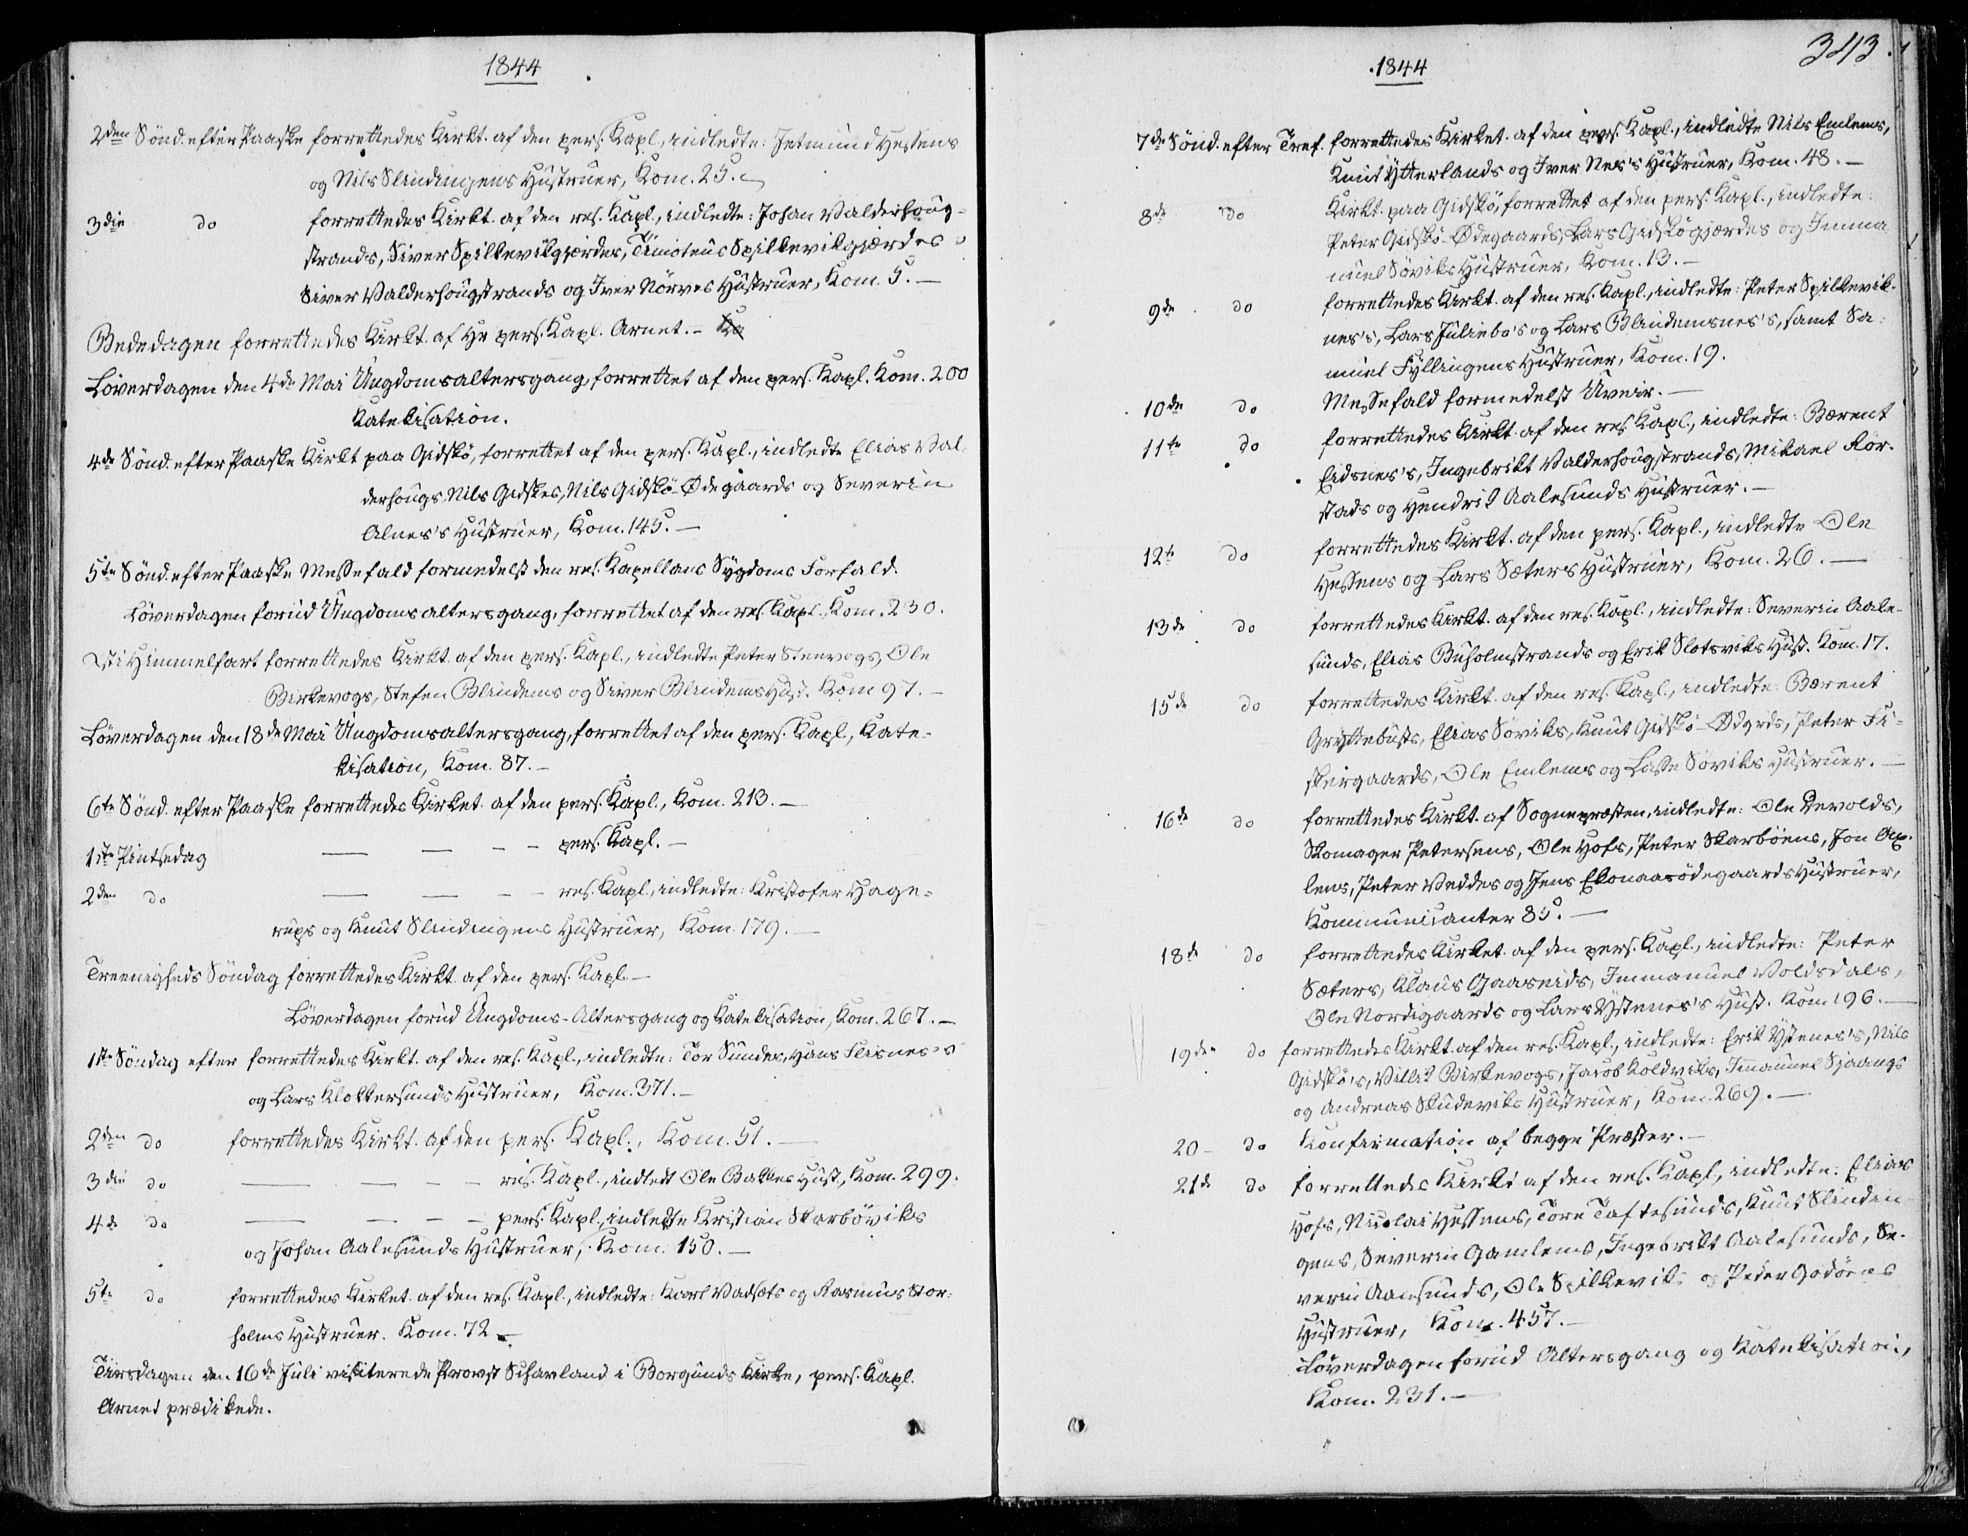 1844
2den Sönd. efter Paaske forrettedes Kirkt. af den pers. Kapl., indledte: Jetmund Hessens
og Nils Slindingens Hustruer, Kom. 25.
3die do forrettedes Kirkt. af den res. Kapl., indledte: Johan Valderhoug-
strands, Siver Spilkevikgjerdes, Timoteus Spilkevikgjærdes
Siver Valderhougstrands og Iver Nörves Hustruer, Kom. 5. —
Bededagen forrettedes Kirkt. af Hr pers. Kapl. Arnet. —
Löverdagen den 4de Mai Ungdomsaltersgang, forrettet af den pers. Kapl. Kom. 200
Katekisation.
4de Sönd. efter Paaske Kirkt paa Gidskö, forrettet af den pers. Kapl., indledte Elias Val
derhougs, Nils Gidskes, Nils Gidskö-Ödegaards og Severin
Alnes's Hustruer, Kom. 145. —
5te Sönd. efter Paaske Messefald formedelst den res. Kapellans Sygdoms Forfald.
Löverdagen forud Ungdomsaltersgang, forrettet af den res. Kapl., Kom. 230.
Xsti Himmelfart forrettedes Kirkt. af den pers. Kapl., indledte Peter Steenvogs, Ole
Birkevogs, Stefen Blindems og Siver Blindems Hust. Kom 97. —
Löverdagen den 18de Mai Ungdomsaltersgang, forrettet af den pers. Kapl., Kate-
kisation, Kom. 87. —
6te Sönd. efter Paaske forrettedes Kirket. af den pers. Kapl., Kom. 213. —
1ste Pintsedag — — — — pers. Kapl. —
2den do — — — — res. Kapl., indledte: Kristofer Hage-
rups og Knut Slindingens Hustruer, Kom. 179. —
Treenigheds Söndag forrettedes Kirkt. af den pers. Kapl. —
Löverdagen forud Ungdoms-Altersgang og Katekisation, Kom. 267. —
1ste Söndag efter forrettedes Kirkt. af den res. Kapl., indledte: Tor Sundes, Hans Flisnes's
og Lars Klokkersunds Hustruer, Kom. 371. —
2den do forrettedes Kirkt. af den pers. Kapl., Kom. 51. —
3die do — — — — res. Kapl., indledt Ole Bakkes Hust., Kom. 299.
4de do — — — — pers. Kapl., indledte Kristian Skarbövik's
og Johan Aalesunds Hustruer, Kom. 150. —
5te do forrettedes Kirket. af den res. Kapl., indledte: Karl Vadsets og Rasmus Stor-
holms Hustruer. Kom. 72 —
Tirsdagen den 16de Juli visiterede Provst Scharland i Borgunds Kirke, pers. Kapl.
Arnet prædikede.
343.
1844
7de Sönd. efter Tref. forrettedes Kirket. af den pers. Kapl., indledte Nils Emlems,
Knut Ytterlands og Iver Nes's Hustruer, Kom. 48. —
8de do Kirkt. paa Gidskö, forrettet af den pers. Kapl., indledte:
Peter Gidskö-Ödegaards, Lars Gidskögjerdes og Imma
nuel Söviks Hustruer, Kom. 13. —
9de do forrettedes Kirkt. af den res. Kapl., indledte: Peter Spilkevik-
nes's, Lars Juliebö's og Lars Blindemsnes's, samt Sa-
muel Fyllingens Hustruer, Kom. 19.
10de do Messefald formedelst Uveir. —
11te do forrettedes Kirkt. af den res. Kapl., indledte: Bærent
Eidsnes's, Ingebrikt Valderhougstrands, Mikael Ror-
stads og Hendrik Aalesunds Hustruer. —
12te do forrettedes Kirkt. af den pers. Kapl., indledte Ole
Hessens og Lars Sæters Hustruer, Kom. 26. —
13de do forrettedes Kirkt. af den res. Kapl., indledte: Severin Aale-
sunds, Elias Buholmstrands og Erik Slotsviks Hust. Kom. 17.
15de do forrettedes Kirkt. af den res. Kapl., indledte: Bærent
Gryttebusts, Elias Söviks, Knut Gidskö-Ödgrds, Peter Fi-
skergaards, Ole Emlems og Lasse Söviks Hustruer. —
16de do forrettedes Kirkt. af Sognepræsten, indledte: Ole Devolds,
Skomager Petersens, Ole Hofs, Peter Skarböens, Jon
lens, Peter Veddes og Jens Ekonaasödegaards Hustruer,
Kommunicanter 85. —
18de do forrettedes Kirket. af den pers. Kapl., indledte: Peter
Sæters, Klaus Gaaseids, Immanuel Voldsdals,
Ole Nordigaards og Lars Ystenes's Hust. Kom 196. —
19de do forrettedes Kirkt. af den res. Kapl., indledte: Erik Ystenes's, Nils
Gidskö's, Villik Birkevogs, Jacob Koldviks, Imanuel Sjaangs
og Andreas Skudeviks Hustruer, Kom. 269. —
20 — do Konfirmation af begge Præster. —
21de do forrettedes Kirkt af den res. Kapl., indledte: Elias
Hofs, Nicolai Hessens, Tore Taftesunds, Knut Slindin
gens, Severin Gamlems, Ingebrikt Aalesunds, Se-
verin Aalesunds, Ole Spilkeviks og Peder Godöens
Hustruer, Kom. 457. —
Löverdagen forud Altersgang og Katekisation,
Kom. 231. —